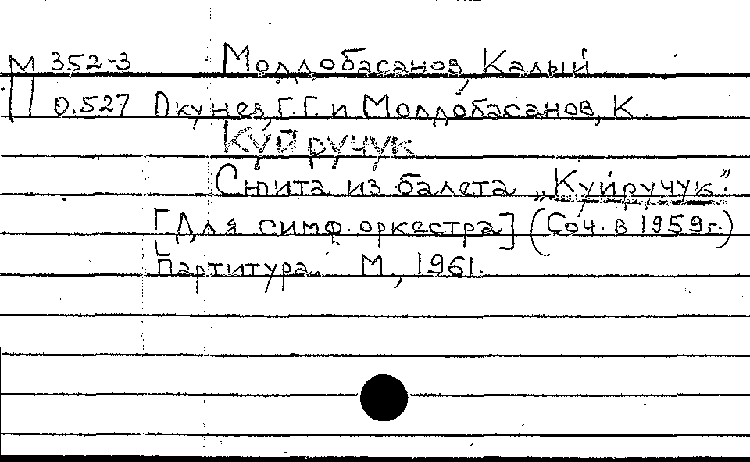 М 352-3 Молдобасанов, Калый
О.527 Окунев, Г.Г. и Молдобасанов, К.
Куйручук
Сюита из балета „Куйручук".
[Для симф. оркестра] (Соч. в 1959г.)
Партитура. М., 1961.